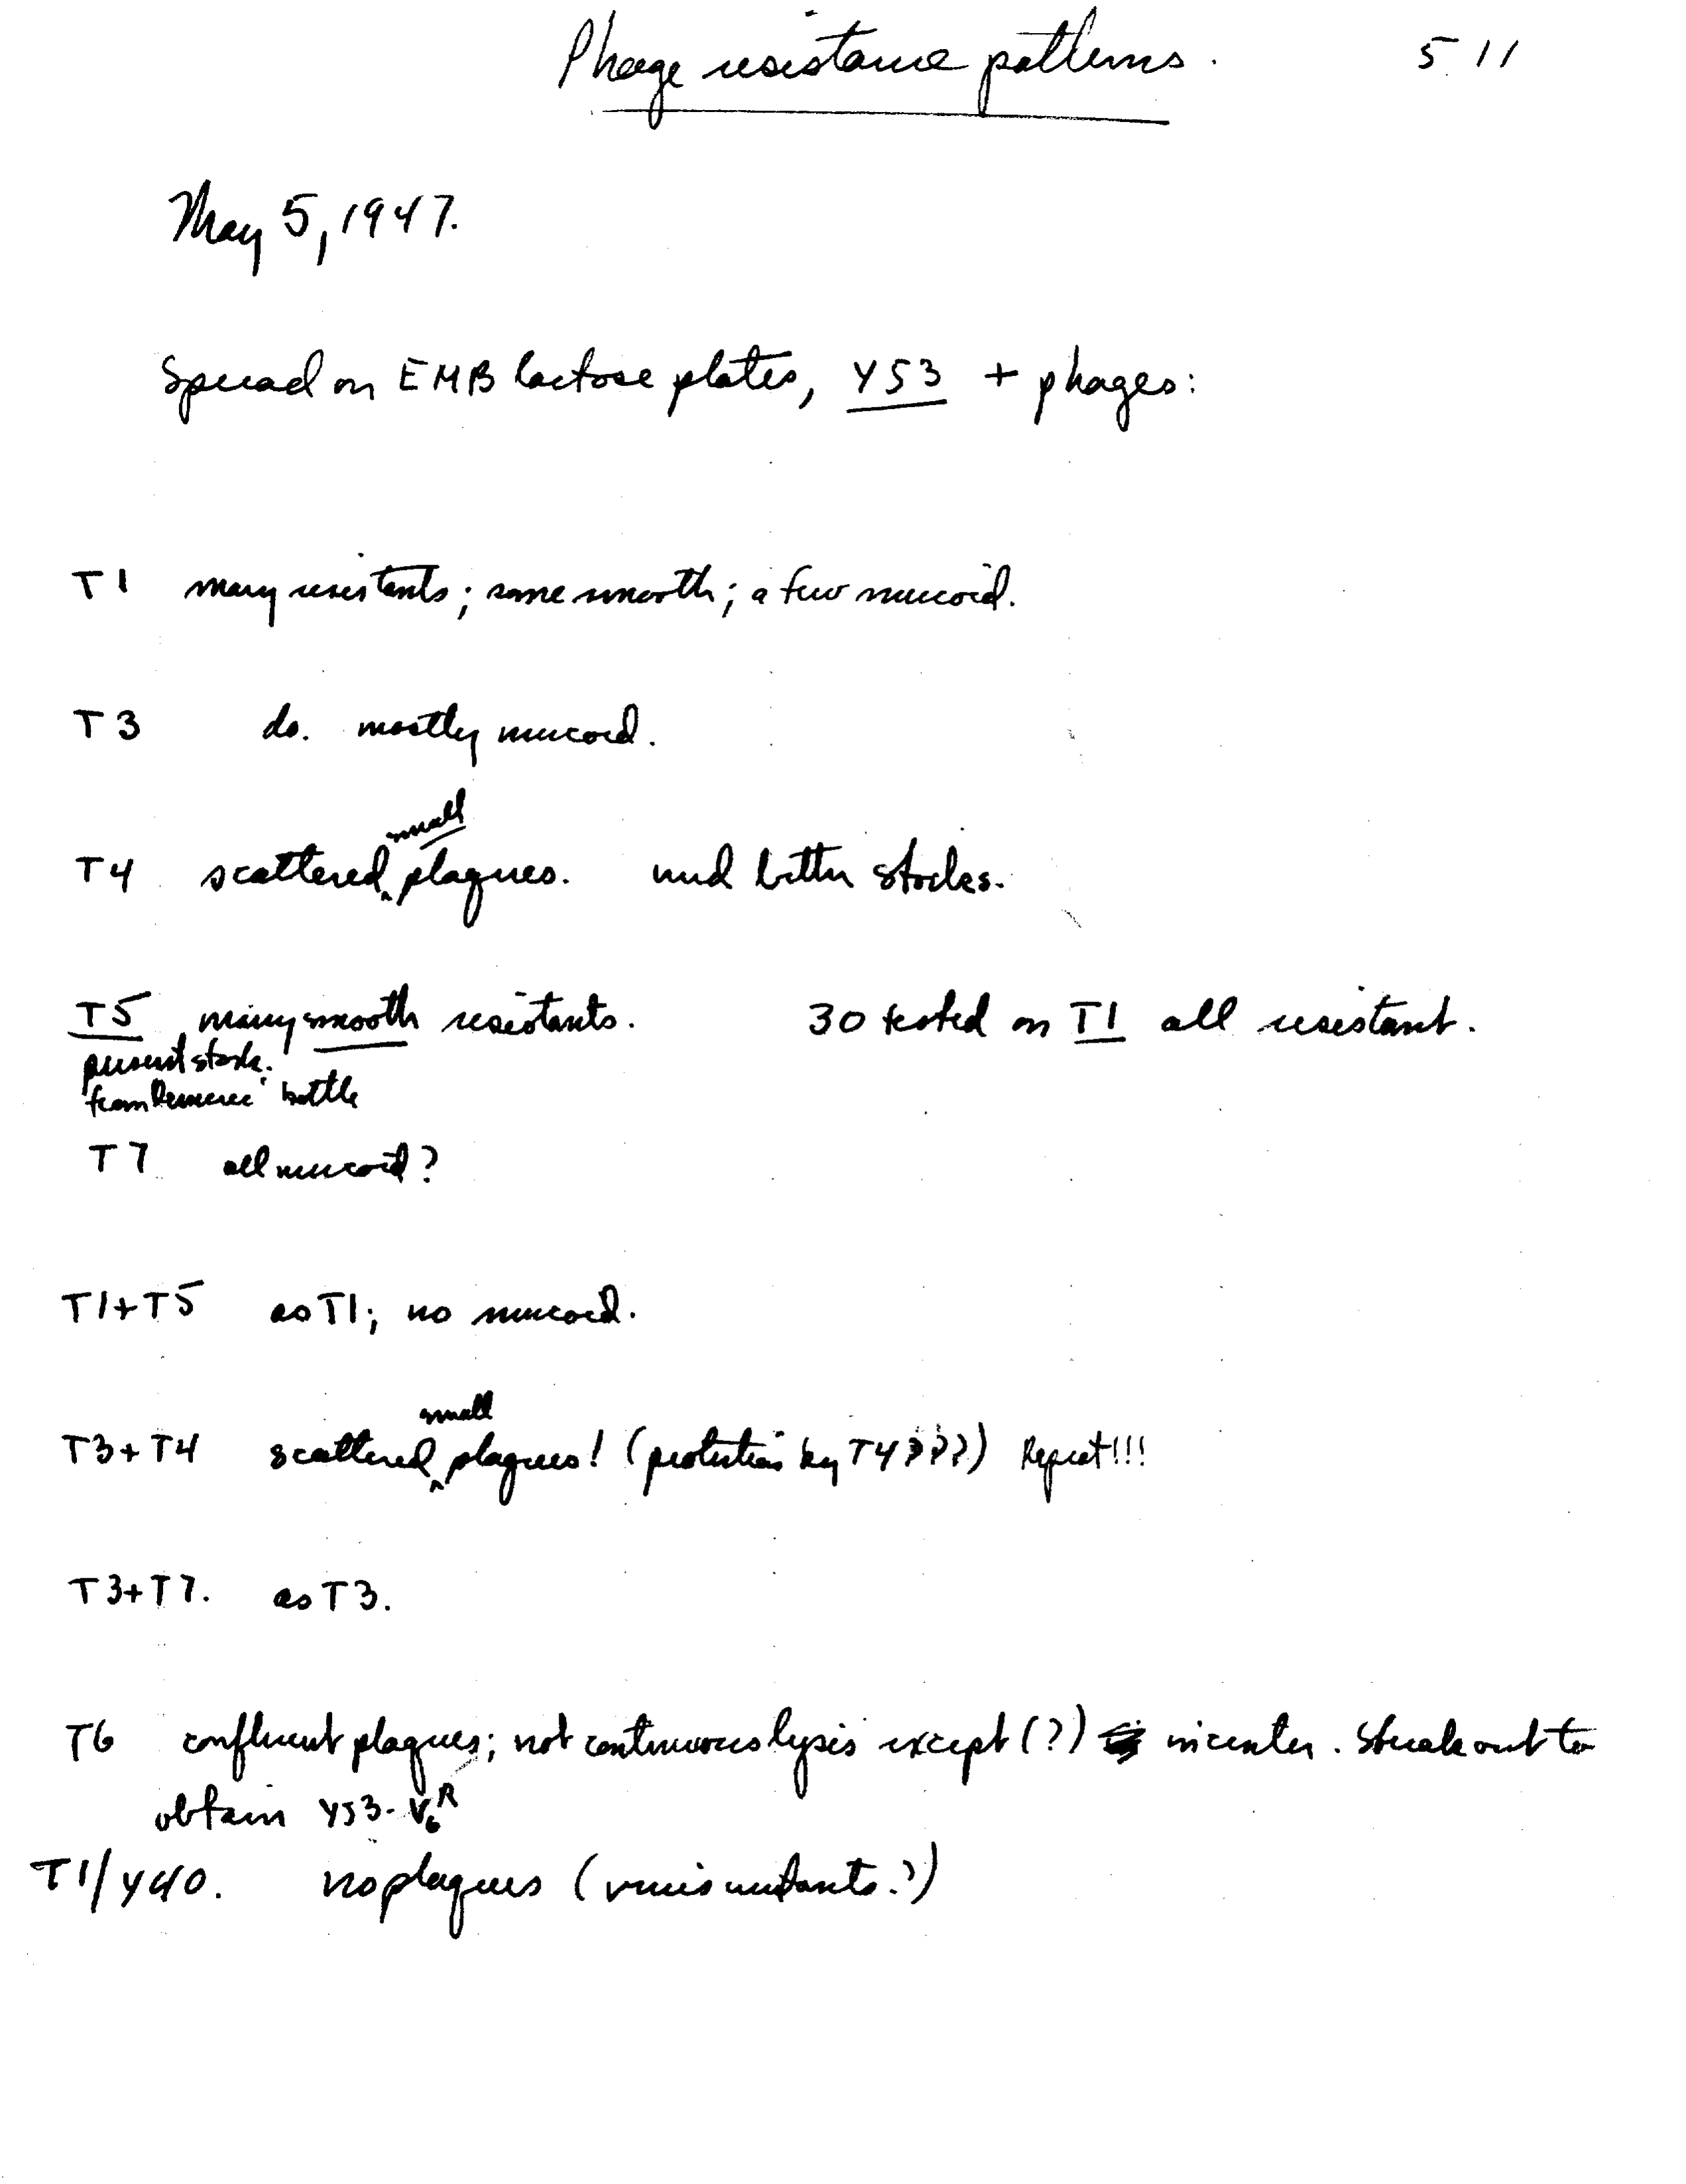 Phage resistance patterns. 511
May 5, 1947.
Spread on EMB lactose plates, Y53 + phages:
T1 many resistants; some smooth; a few mucoid.
T3 do. mostly mucoid.
small
T4 scattered plaques. need better stocks.
T5 many smooth resistants. 30 tested on T1 all resistant.
present stock.
from Demerec bottle
T7 all mucoid?
T1+T5 as T1; no mucoid.
small
T3+T4 scattered plaques! (protection by T4???) Repeat!!!
T3+T7. as T3.
T6 confluent plaques; not continuous lysis except (?) in center. Streak out to
obtain Y53-V6R
T1/Y40. no plaques (virus mutants?)